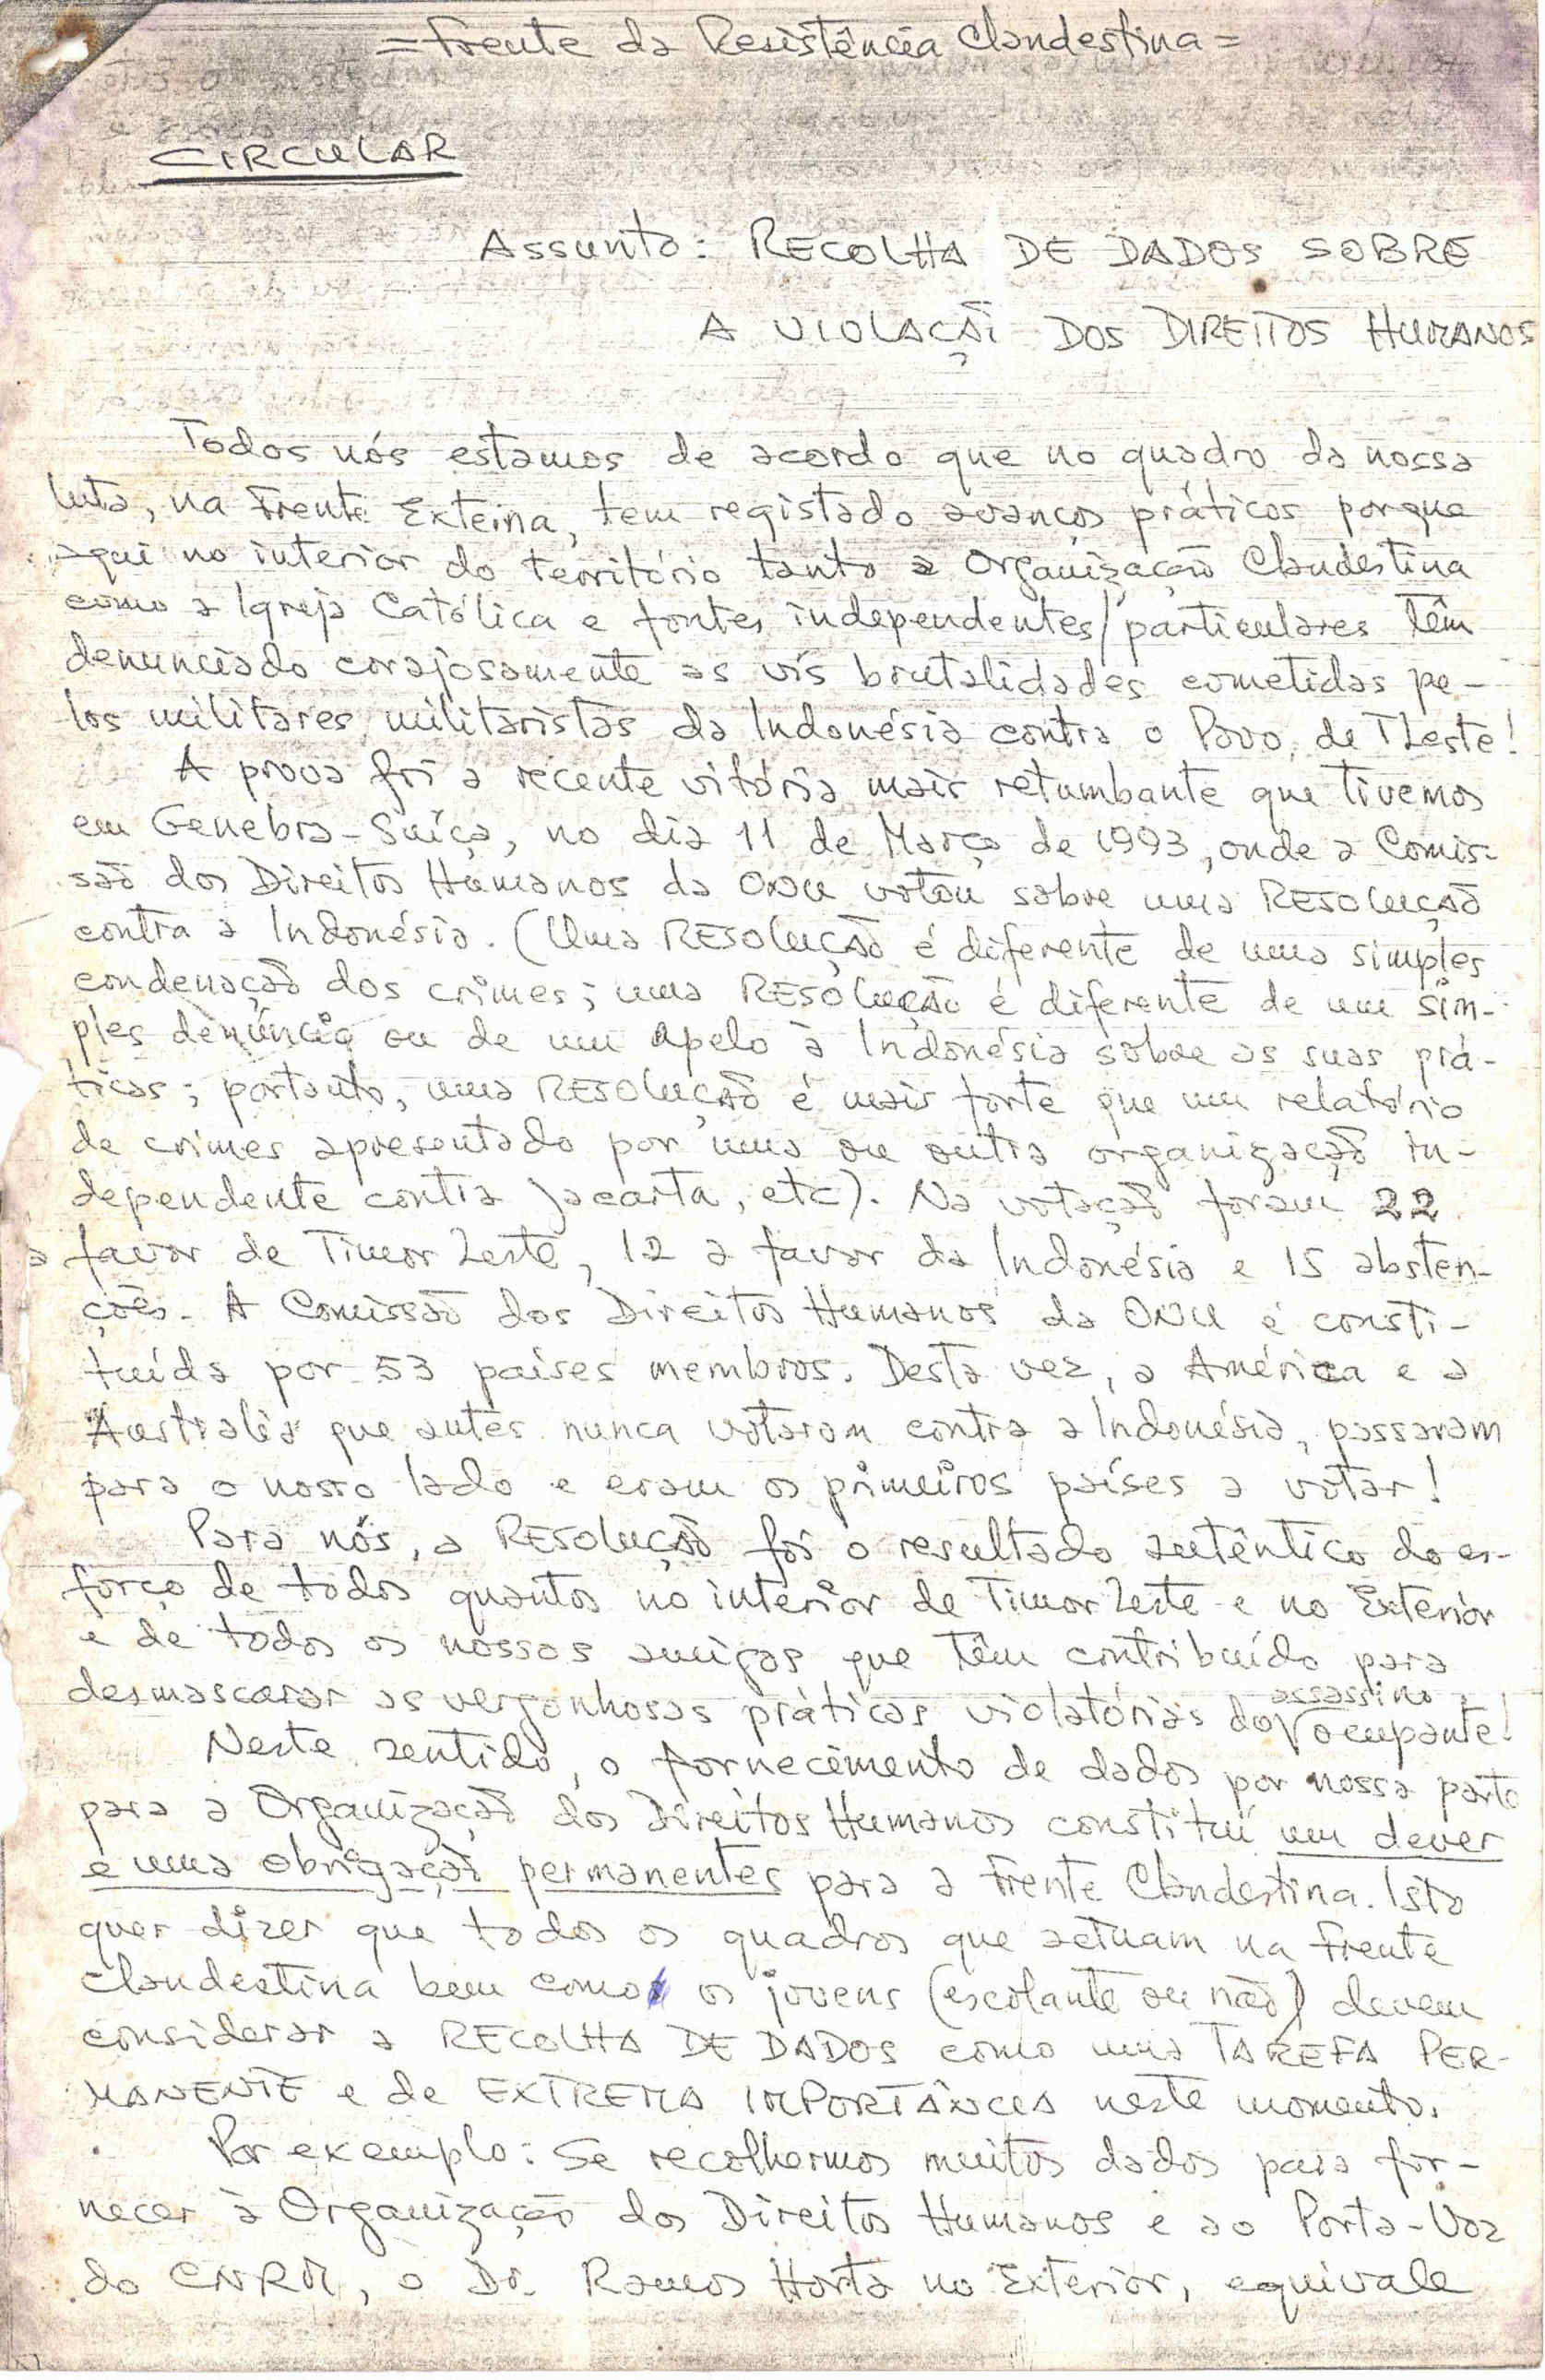 = Frente da Resistência Clandestina =
CIRCULAR
Assunto: RECOLHA DE DADOS SOBRE
A VIOLAÇÃO DOS DIREITOS HUMANOS
Todos nós estamos de acordo que no quadro da nossa
luta, na Frente Externa, tem registado avanços práticos porque
aqui no interior do território tanto a Organização Clandestina
como a Igreja Católica e fontes independentes/particulares têm
denunciado corajosamente as vis brutalidades cometidas pe-
los militares militaristas da Indonésia contra o Povo de TLeste!
A prova foi a recente vitória mais retumbante que tivemos
em Genebra-Suíça, no dia 11 de Março de 1993, onde a Comis-
são dos Direitos Humanos da ONU votou sobre uma RESOLUÇÃO
contra a Indonésia. (Uma RESOLUÇÃO é diferente de uma simples
condenação dos crimes; uma RESOLUÇÃO é diferente de um sim-
ples denúncia ou de um apelo à Indonésia sobre as suas prá-
ticas; portanto, uma RESOLUÇÃO é mais forte que um relatório
de crimes apresentado por uma ou outra organização in-
dependente contra Jacarta, etc). Na votação foram 22
a favor de Timor Leste, 12 a favor da Indonésia e 15 absten-
ções. A Comissão dos Direitos Humanos da ONU é consti-
tuída por 53 países membros. Desta vez, a América e a
Austrália que antes nunca votaram contra a Indonésia, passaram
para o nosso lado e eram os primeiros países a votar!
Para nós, a RESOLUÇÃO foi o resultado autêntico do es-
forço de todos quantos no interior de Timor Leste e no Exterior
e de todos os nossos amigos que têm contribuído para
desmascarar as vergonhosas práticas violatórias do assassino ocupante!
Neste sentido, o fornecimento de dados por nossa parte
para a Organização dos Direitos Humanos constitui um dever
e uma obrigação permanentes para a Frente Clandestina. Isto
quer dizer que todos os quadros que actuam na Frente
Clandestina bem como os jovens (escolante ou não) devem
considerar a RECOLHA DE DADOS como uma TAREFA PER-
MANENTE e de EXTREMA IMPORTÂNCIA neste momento.
Por exemplo: Se recolhermos muitos dados para for-
necer à Organização dos Direitos Humanos e ao Porta-Voz
do CNRM, o Dr. Ramos Horta no Exterior, equivale